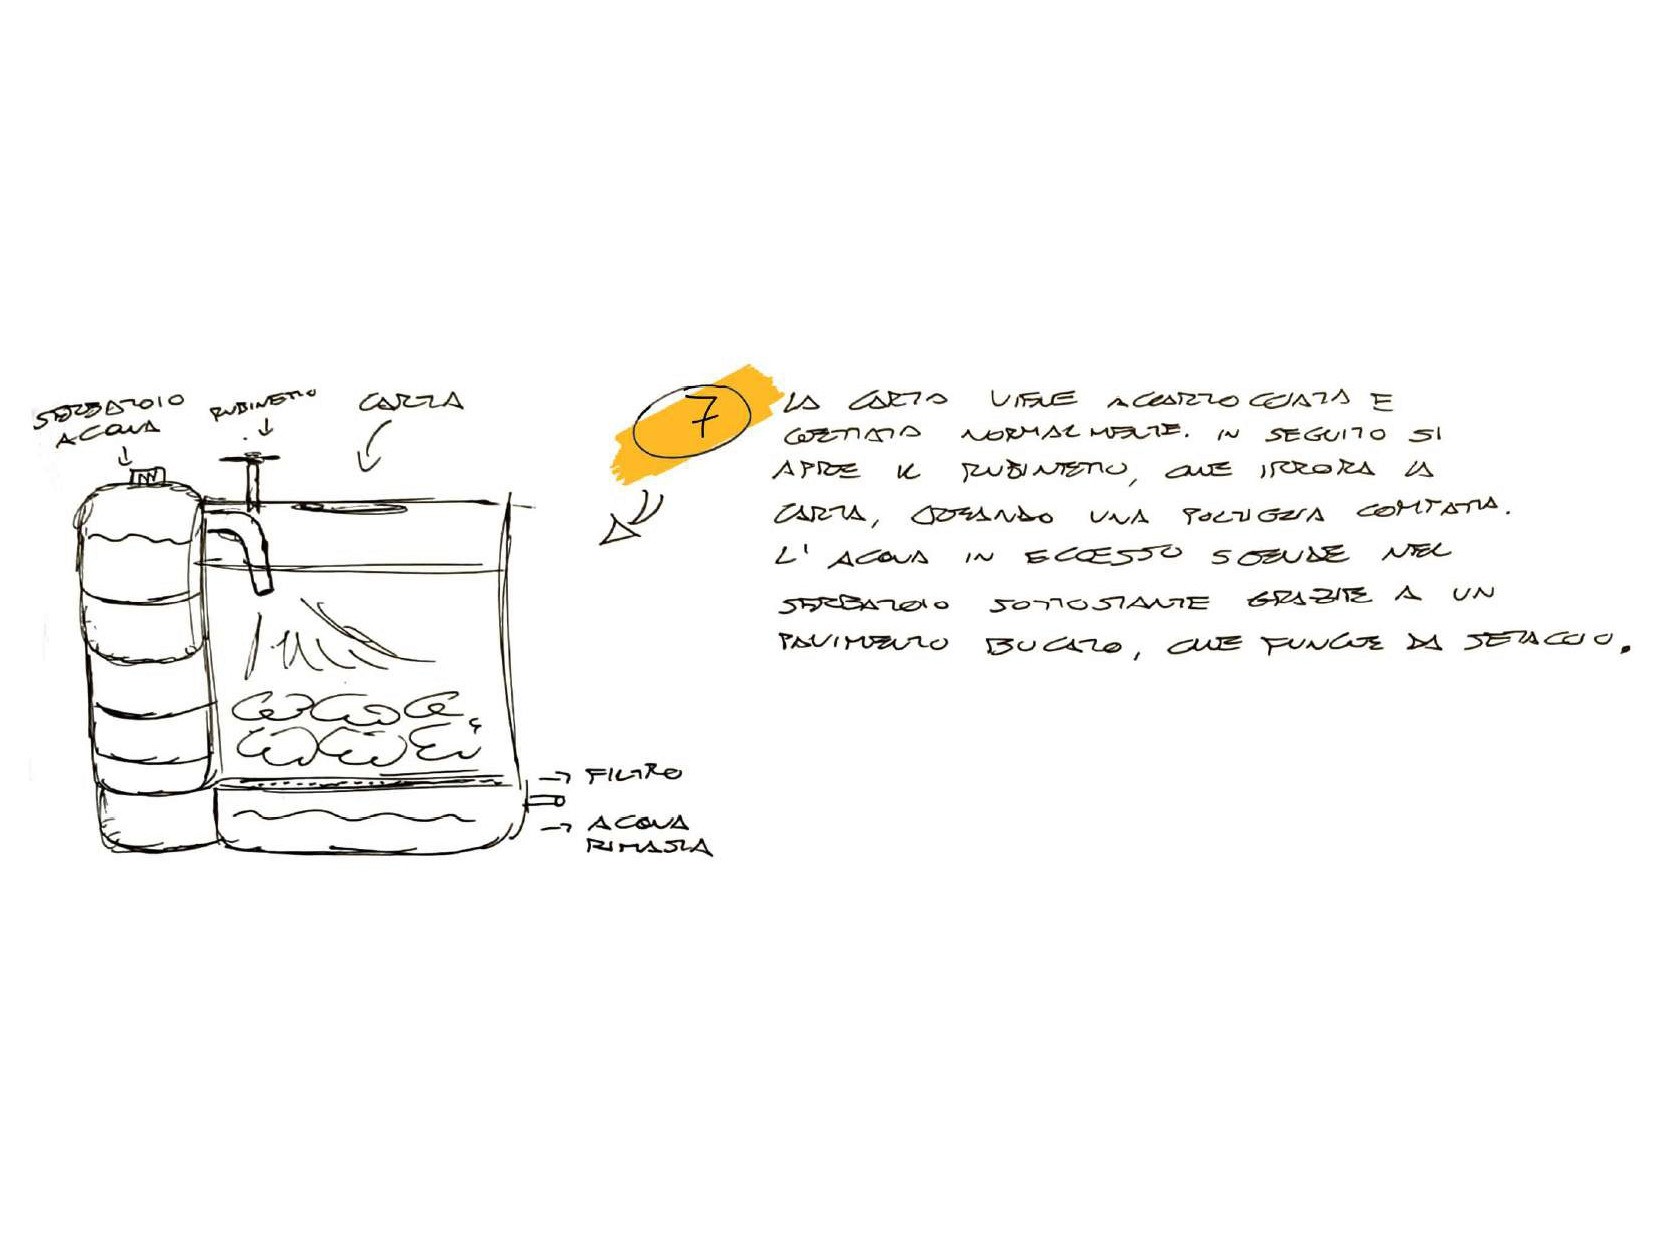 SERBATOIO
ACQUA
RUBINETTO
CARTA
7
LA CARTA VIENE ACCARTOCCIATA E
GETTATA NORMALMENTE. IN SEGUITO SI
APRE IL RUBINETTO, CHE IRRORA LA
CARTA, CREANDO UNA POLTIGLIA COMPATTA.
L'ACQUA IN ECCESSO SCENDE NEL
SERBATOIO SOTTOSTANTE GRAZIE A UN
PAVIMENTO BUCATO, CHE FUNGE DA SETACCIO.
→ FILTRO
→ ACQUA
RIMASTA